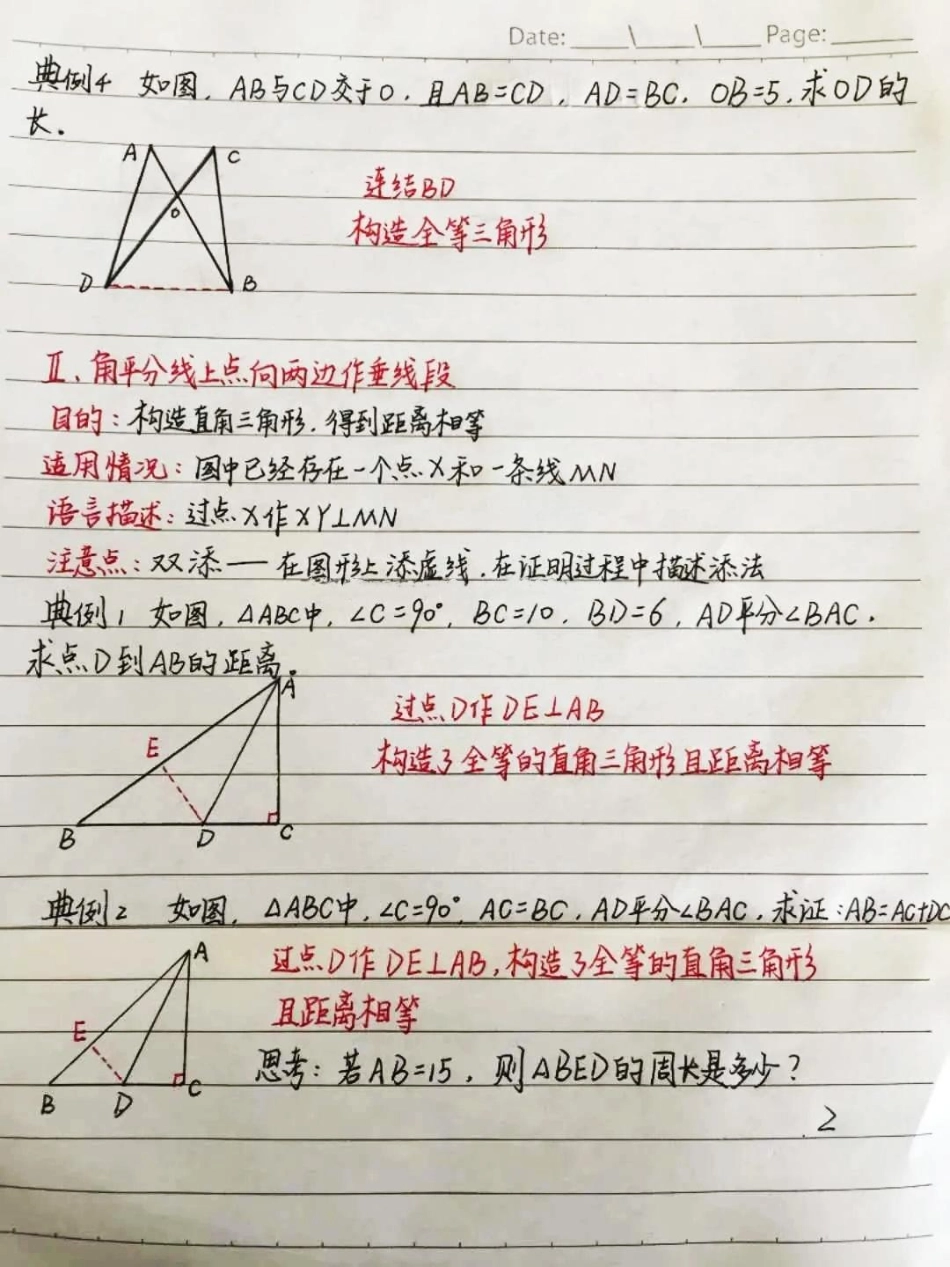 Date: ____\____\____ Page: ______
典例4 如图, AB与CD交于O, 且AB=CD, AD=BC, OB=5, 求OD的
长.
A C
连结BD
O
构造全等三角形
D B
Ⅱ、角平分线上点向两边作垂线段
目的: 构造直角三角形, 得到距离相等
适用情况: 图中已经存在一个点X和一条线MN
语言描述: 过点X作XY⊥MN
注意点: 双添——在图形上添虚线, 在证明过程中描述添法
典例1 如图, △ABC中, ∠C=90°, BC=10, BD=6, AD平分∠BAC.
求点D到AB的距离.
A
过点D作DE⊥AB
E
构造了全等的直角三角形且距离相等
B D C
典例2 如图, △ABC中, ∠C=90°, AC=BC, AD平分∠BAC, 求证: AB=AC+DC
A
过点D作DE⊥AB, 构造了全等的直角三角形
且距离相等
E
思考: 若AB=15, 则△BED的周长是多少?
B D C
2